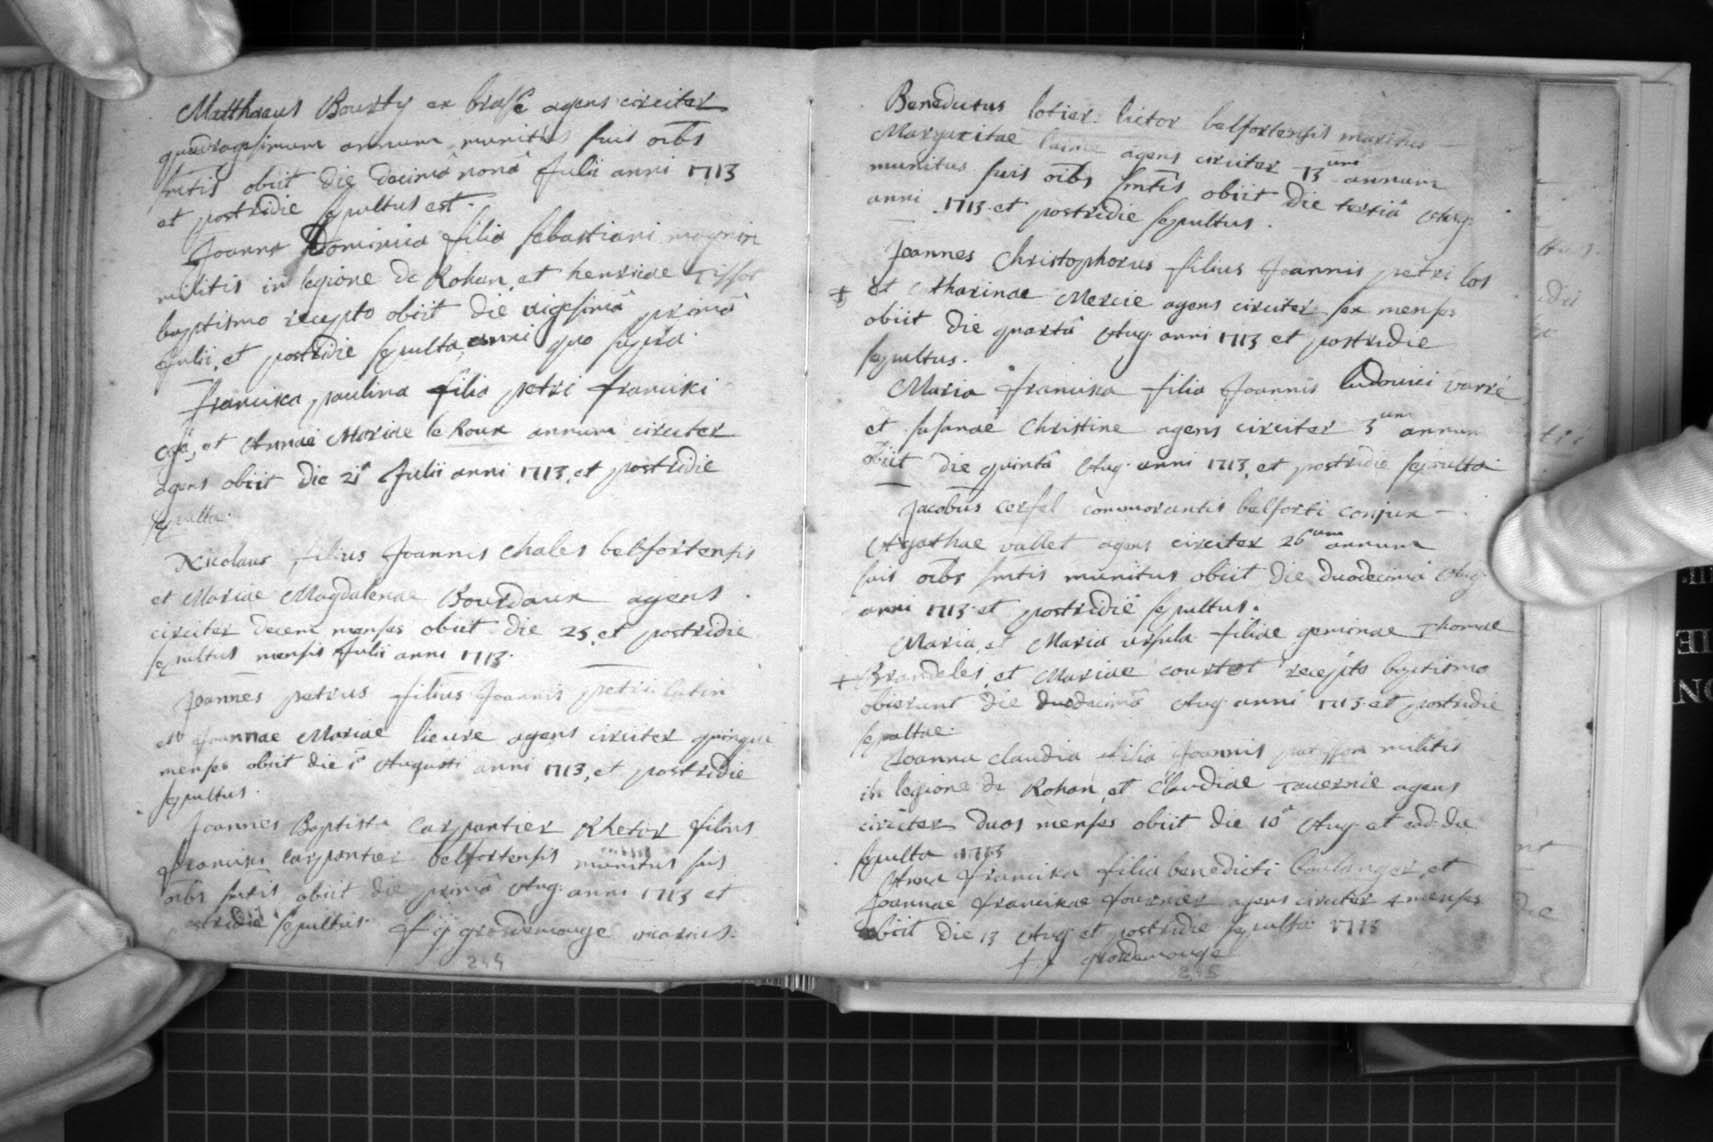 Matthaeus Bourty ex brasse agens circiter
quadragesimum annum munitus suis oibs
smtis obiit die decimâ nonâ Julii anni 1713
et postridie sepultus est.
Joanna Dominica filia sebastiani magnin
militis in legione de Rohan, et henricae Tissot
baptismo recepto obiit die vigesimâ primâ
Julii, et postridie sepulta, anni quo suprà.
francisca paulina filia petri francisci
et Annae Mariae le Roux annum circiter
agens obiit die 21â Julii anni 1713, et postridie
sepulta.
Nicolaus filius Joannis Chales belfortensis
et Mariae Magdalenae Bourdaux agens
circiter decem menses obiit die 25, et postridie
sepultus mensis Julii anni 1713.
Joannes petrus filius Joannis petri latin
et Joannae Mariae lieure agens circiter quinque
menses obiit die 1â Augusti anni 1713, et postridie
sepultus.
Joannes Baptista Carpantier Rhetor filius
francisci Carpantier belfortensis munitus suis
oibs smtis obiit die primâ Aug. anni 1713 et
postridie sepultus. f ij grosdemouge vicarius.
244
Benedictus lotier lictor belfortensis maritus
Margaritae agens circiter 73um annum
munitus suis oibs smtis obiit die tertiâ Aug.
anni 1713 et postridie sepultus.
Joannes Christophorus filius Joannis petri los
+ et Catharinae Mercie agens circiter sex menses
obiit die quartâ Aug. anni 1713 et postridie
sepultus.
Maria francisca filia Joannis ludovici varré
et susanae Christine agens circiter 3um annum
obiit die quintâ Aug. anni 1713, et postridie sepulta
Jacobus cerfal commorantis belforti conjux
Agathae vallet agens circiter 26um annum
suis oibs smtis munitus obiit die duodecimâ Aug.
anni 1713 et postridiè sepultus.
Maria, et Maria ursula filiae geminae Thomae
+ Brandeles, et Mariae courtot recepto baptismo
obierunt die duodecimâ Aug. anni 1713 et postridie
sepultae.
Joanna claudia filia Joannis militis
in legione de Rohan, et Claudiae Tavernie agens
circiter duos menses obiit die 10â Aug. et eod. die
sepulta 1713
Anna francisca filia benedicti boulanger, et
Joannae franciscae fournier agens circiter 4 menses
obiit die 13 Aug. et postridie sepulta 1713
f ij grosdemouge
245